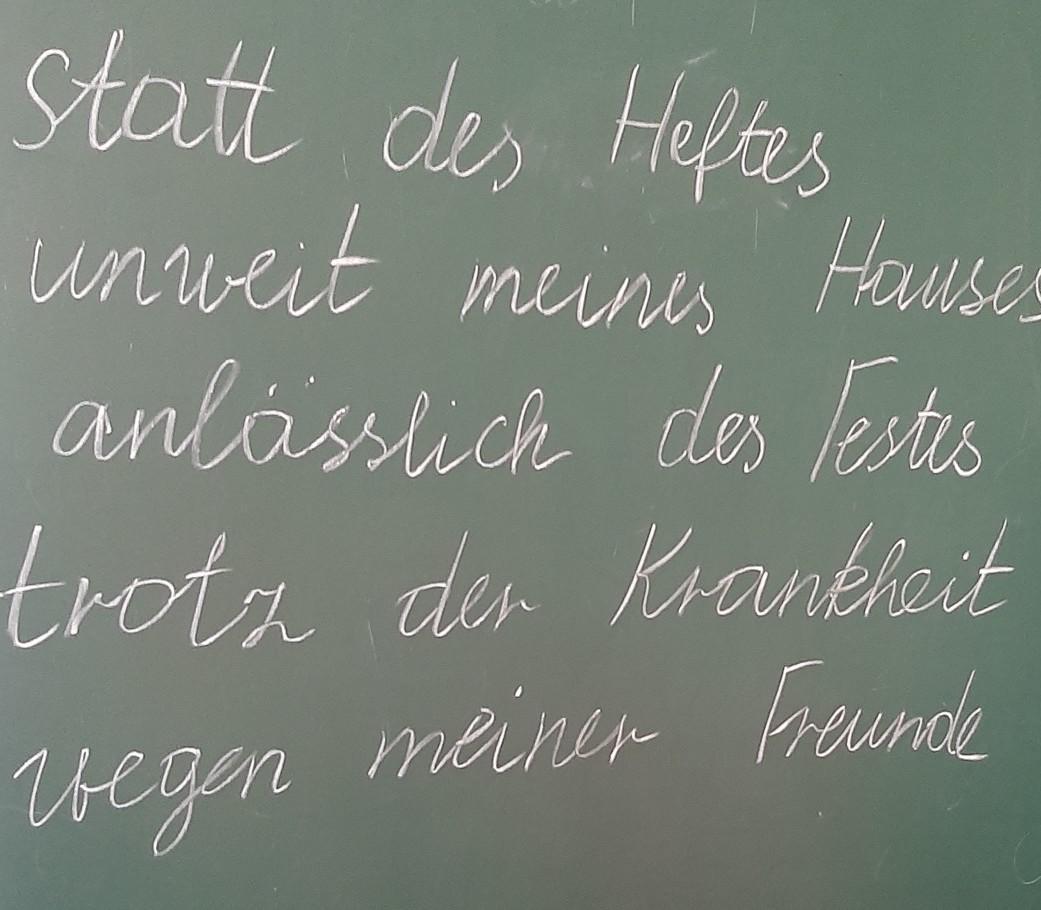 statt des Heftes
unweit meines Hauses
anlässlich des Festes
trotz der Krankheit
wegen meiner Freunde